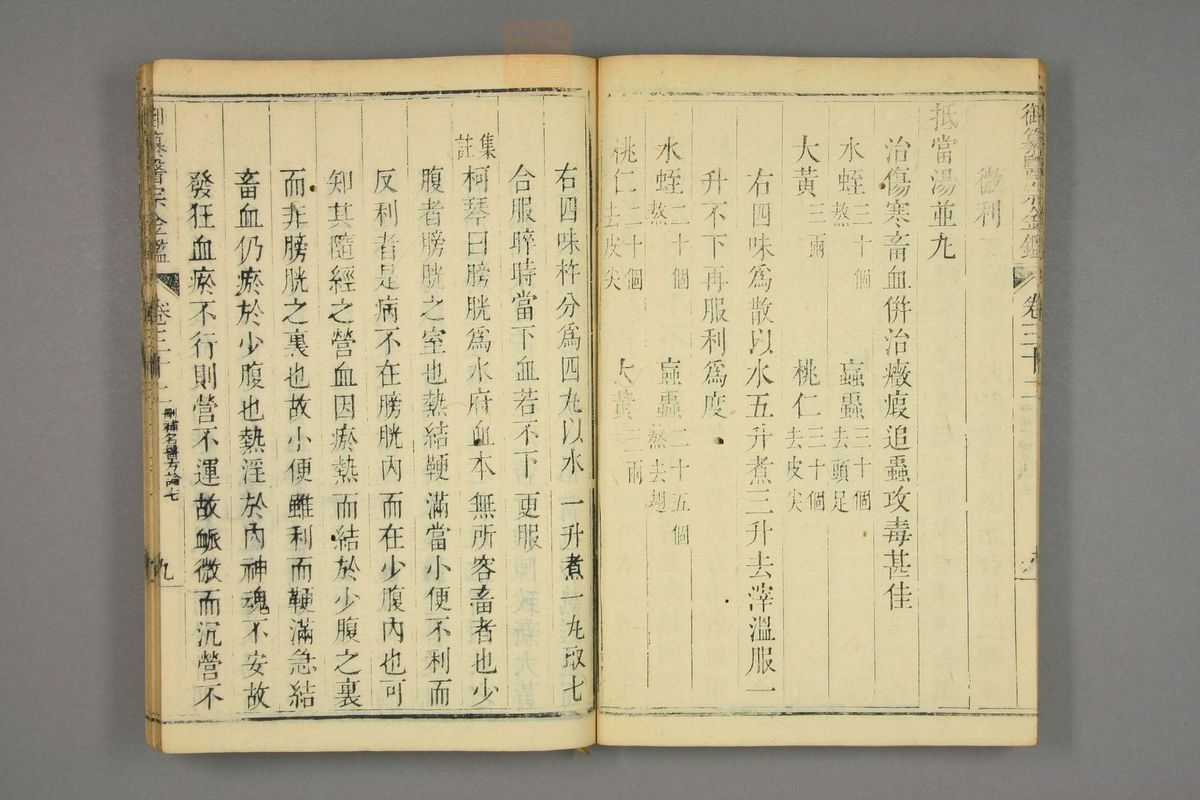 御纂醫宗金鑑 卷三十二
微利
抵當湯並丸
治傷寒畜血併治癥瘕追蟲攻毒甚佳
水蛭三十個熬 䖟蟲三十個去頭足
大黃三兩 桃仁三十個去皮尖
右四味爲散以水五升煮三升去滓溫服一
升不下再服利爲度
水蛭二十個熬 䖟蟲二十五個熬去翅
桃仁二十個去皮尖 大黃三兩
右四味杵分爲四丸以水一升煮一丸取七
合服晬時當下血若不下更服
集註
柯琴曰膀胱爲水府血本無所容畜者也少
腹者膀胱之室也熱結鞕滿當小便不利而
反利者是病不在膀胱內而在少腹內也可
知其隨經之營血因瘀熱而結於少腹之裏
而非膀胱之裏也故小便雖利而鞕滿急結
畜血仍瘀於少腹也熱淫於內神魂不安故
發狂血瘀不行則營不運故脈微而沉營不
御纂醫宗金鑑 卷三十二 刪補名醫方論七 九